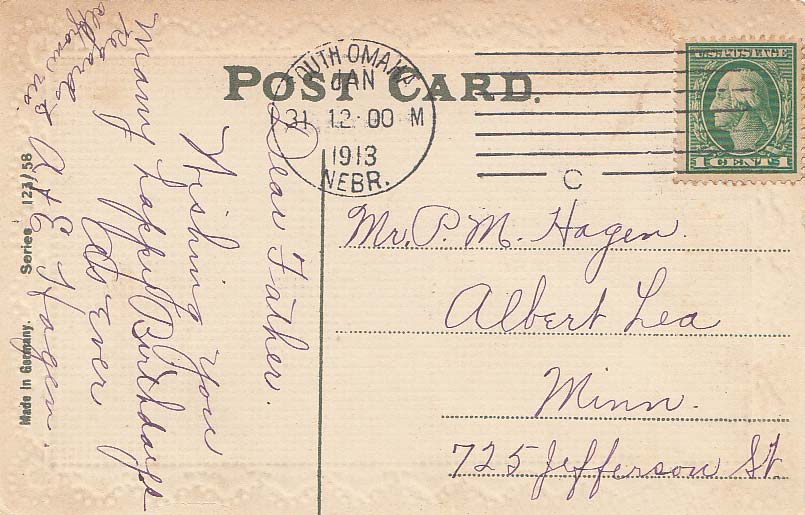 POST CARD.
SOUTH OMAHA
JAN
31 12-00 M
1913
NEBR.
C
U.S. POSTAGE
1 CENTS 1
Dear Father.
Wishing You
Many happy Birthdays
As Ever
A & E Hagen.
Regards
from us
Mr. P. M. Hagen.
Albert Lea
Minn.
725 Jefferson St.
Made in Germany. Series 123/58